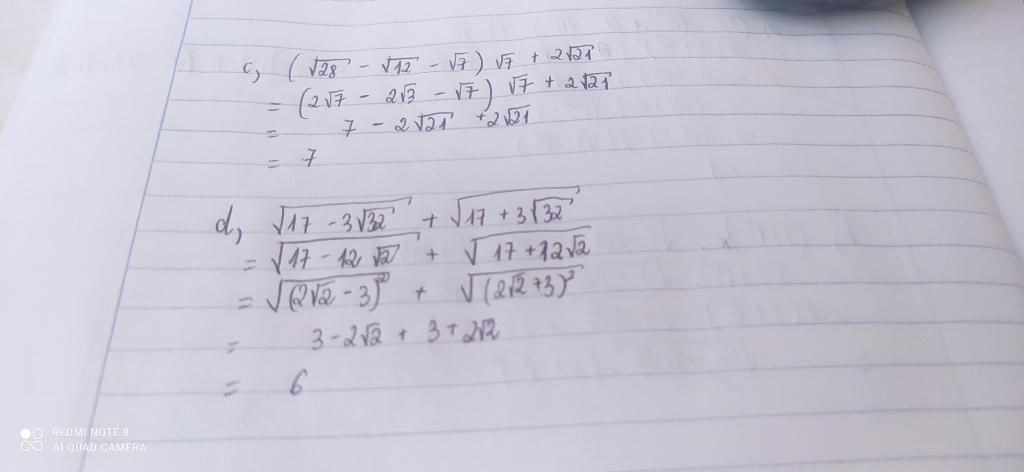 c, (√28 - √12 - √7) √7 + 2√21
= (2√7 - 2√3 - √7) √7 + 2√21
= 7 - 2√21 + 2√21
= 7
d, √(17 - 3√32) + √(17 + 3√32)
= √(17 - 12√2) + √(17 + 12√2)
= √(2√2 - 3)² + √(2√2 + 3)²
= 3 - 2√2 + 3 + 2√2
= 6
REDMI NOTE 8
AI QUAD CAMERA